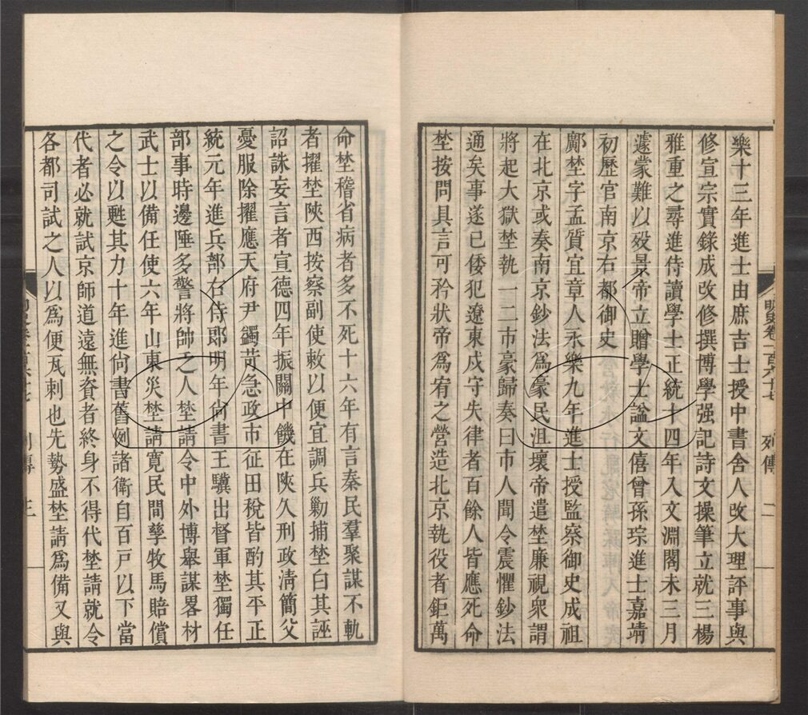 樂十三年進士由庶吉士授中書舍人改大理評事與
修宣宗實錄成改修撰博學强記詩文操筆立就三楊
雅重之尋進侍讀學士正統十四年入文淵閣未三月
遽蒙難以歿景帝立贈學士諡文僖曾孫琮進士嘉靖
初歷官南京右都御史
鄺埜字孟質宜章人永樂九年進士授監察御史成祖
在北京或奏南京鈔法爲豪民沮壞帝遣埜廉視衆謂
將起大獄埜執一二市豪歸奏曰市人聞令震懼鈔法
通矣事遂已倭犯遼東戍守失律者百餘人皆應死命
埜按問具言可矜狀帝爲宥之營造北京執役者鉅萬
命埜稽省病者多不死十六年有言秦民羣聚謀不軌
者擢埜陝西按察副使敕以便宜調兵勦捕埜白其誣
詔誅妄言者宣德四年振關中饑在陝久刑政清簡父
憂服除擢應天府尹蠲苛急政市征田稅皆酌其平正
統元年進兵部右侍郎明年尙書王驥出督軍埜獨任
部事時邊陲多警將帥乏人埜請令中外博舉謀畧材
武士以備任使六年山東災埜請寬民間孳牧馬賠償
之令以甦其力十年進尙書舊例諸衛自百戶以下當
代者必就試京師道遠無資者終身不得代埜請就令
各都司試之人以爲便瓦剌也先勢盛埜請爲備又與